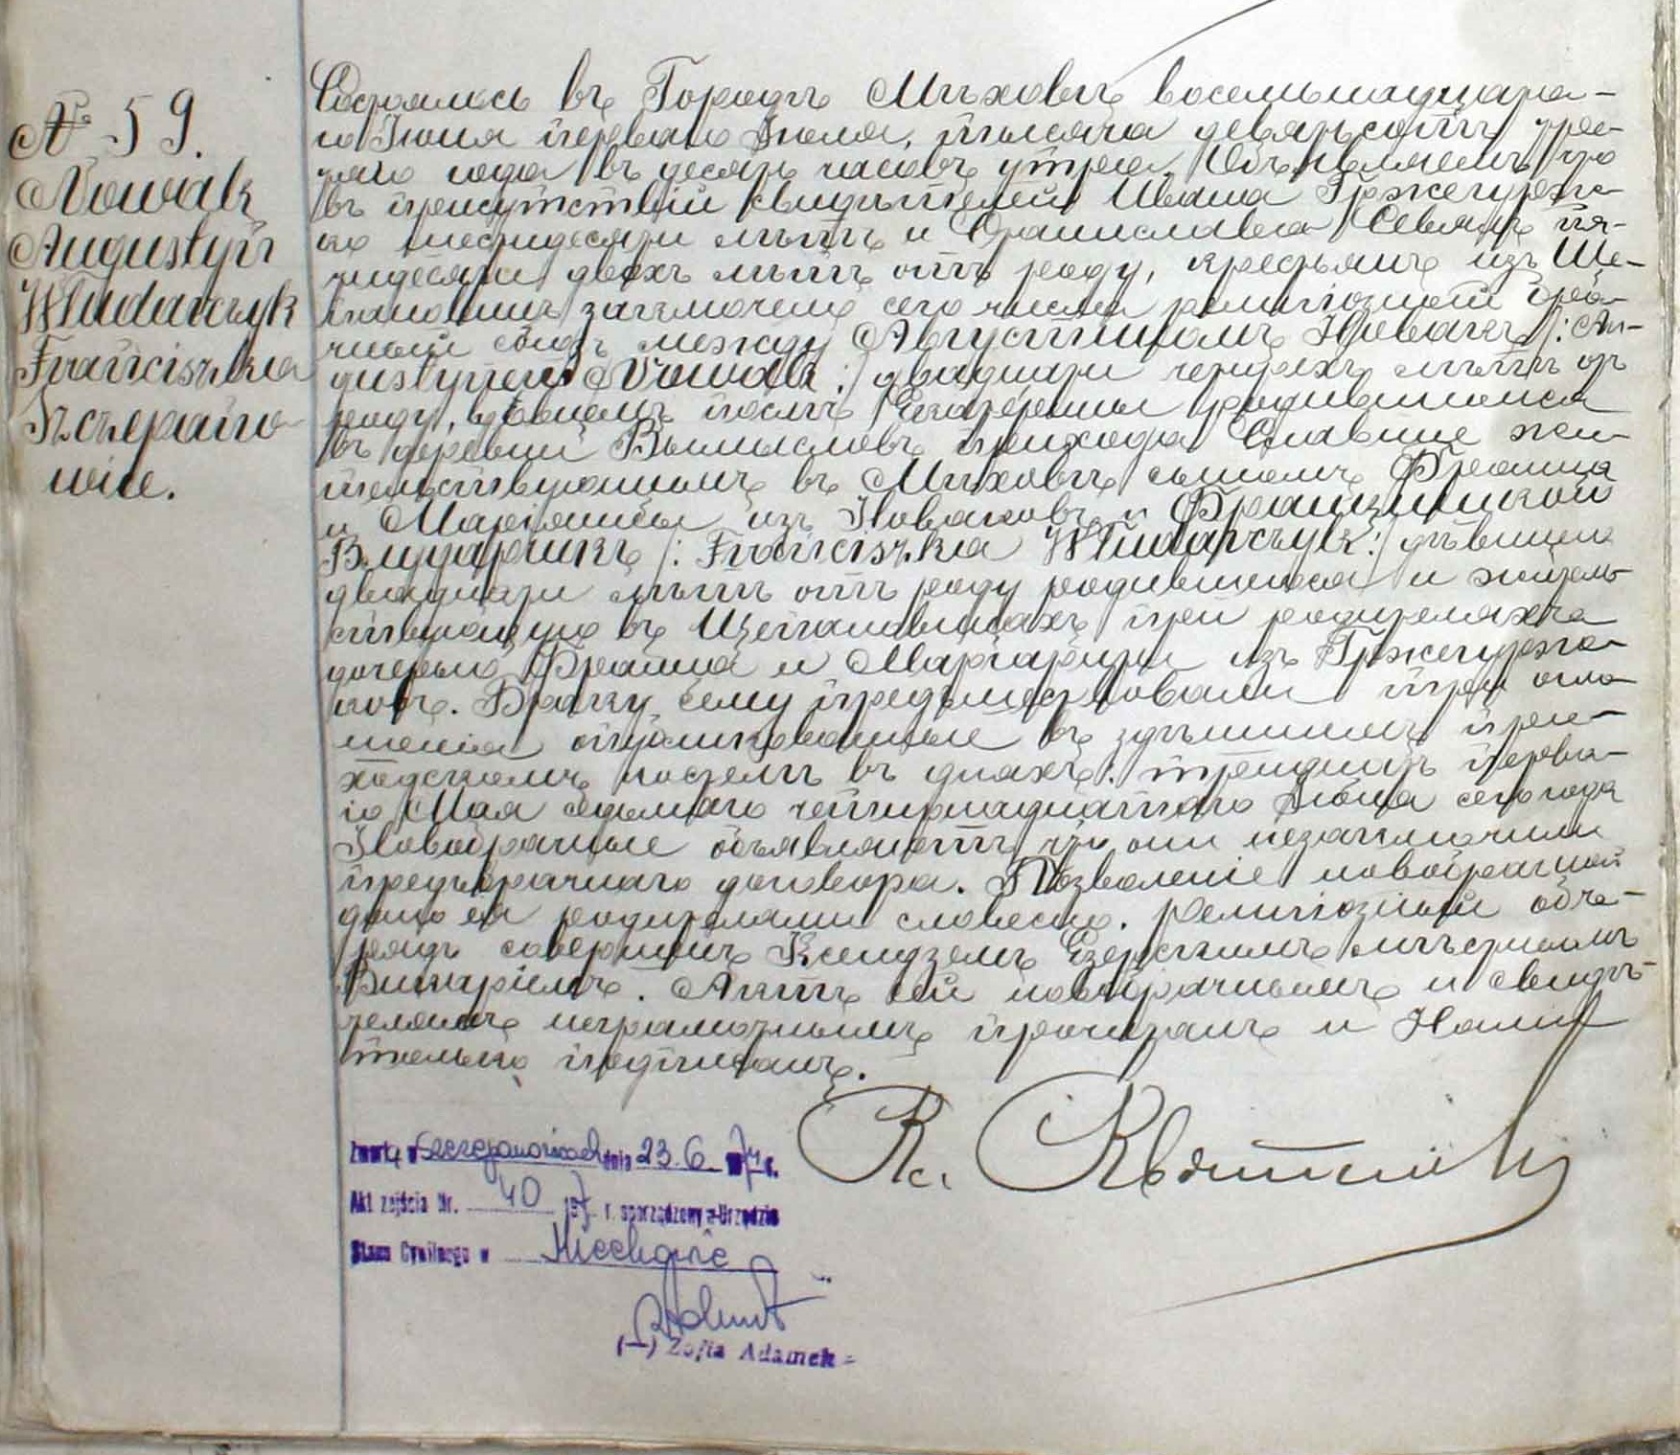 № 59.
Nowak
Augustyn
Włudarczyk
Franciszka
Szczepano-
wice.
Состоялось въ Городѣ Мѣховѣ восемьнадцата-
го Іюня перваго Іюля, тысяча девятьсотъ трет-
яго года въ десять часовъ утра. Объявляемъ что
въ присутствіи свидѣтелей Ивана Гржегурж-
ко шестидесяти лѣтъ и Станислава пя-
тидесяти двохъ лѣтъ отъ роду, крестьянъ изъ Ще-
пановицъ заключенъ сего числа религіозный брач-
ный союзъ между Августиномъ Новакъ /: Au-
gustynem Nowak :/ двадцати четырехъ лѣтъ отъ
роду, вдовцомъ послѣ Екатерины родившимся
въ деревни Вымысловъ прихода Славице жи-
тельствующимъ въ Мѣховѣ сыномъ Франца
и Маріянны изъ Новаковъ и Францишкой
Влударчикъ /: Franciszka Włudarczyk :/ дѣвицею
двадцати лѣтъ отъ роду родившеюся и житель-
ствующую въ Щепановицахъ при родителяхъ
дочерью Франца и Маргариты изъ Гржегуржко-
ковъ. Браку сему предшествовали три огла-
шенія опубликованные въ здѣшнемъ при-
ходскомъ костелѣ въ дняхъ: тридцать перва-
го Мая седьмаго четырнадцатаго Іюня сего года
Новобрачные объявляютъ что они незаключили
предбрачнаго договора. Позволеніе новобрачной
дано ея родителями словесно. Религіозный обч-
рядъ совершенъ Ксендзомъ Езерскимъ мѣстнымъ
Викаріемъ. Актъ сей новобрачнымъ и свидѣ-
телямъ неграмотнымъ прочитанъ и Нами
только подписанъ.
Кс.
Zmarł w Szczepanowicach dnia 23.6. r.
Akt zejścia Nr. 40 r. sporządzony w Urzędzie
Stanu Cywilnego w Miechowie
(—) Zofia Adamek